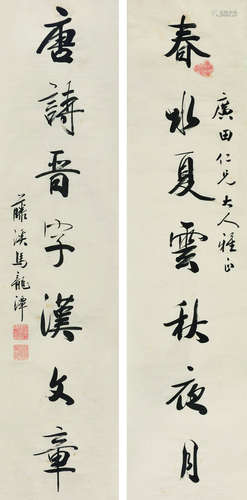 春水夏雲秋夜月
廣田仁兄大人雅正
唐詩晋字漢文章
藤溪馬龍潭